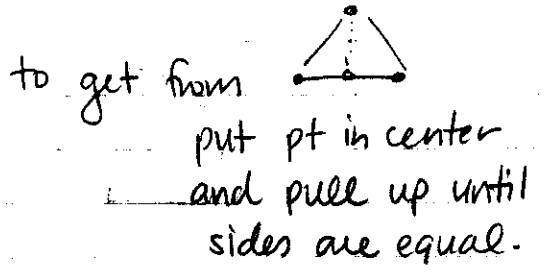 to get from
put pt in center
and pull up until
sides are equal.